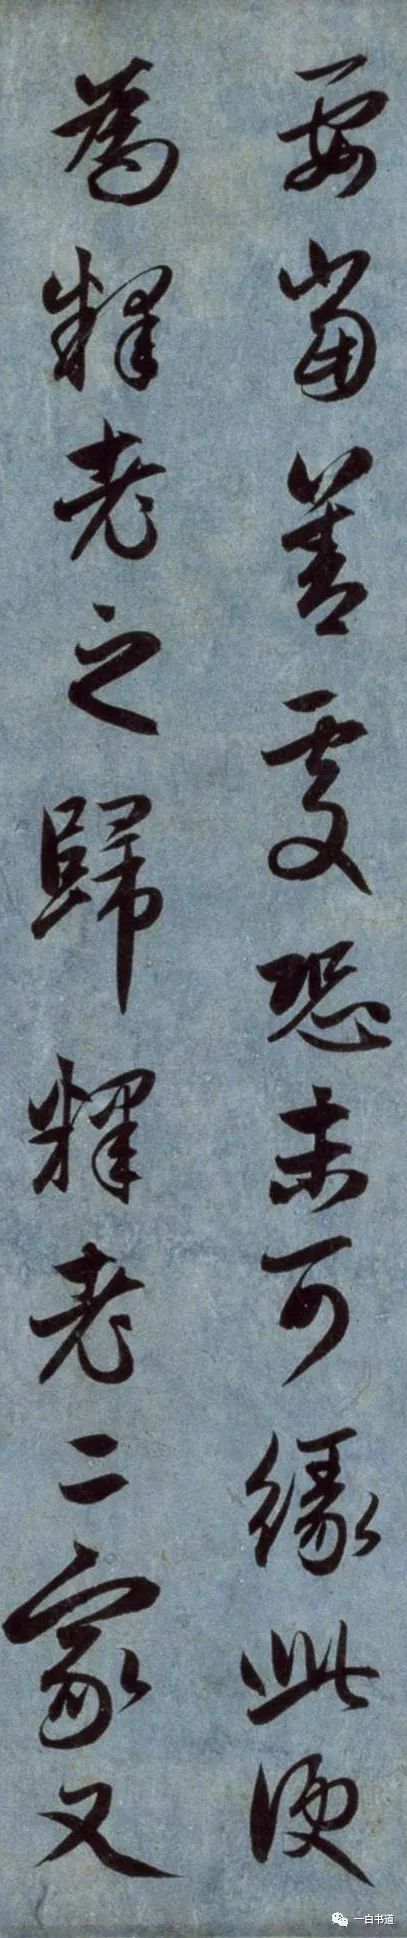 要當善處恐未可緣此便
為釋老之歸釋老二家又
一白书道